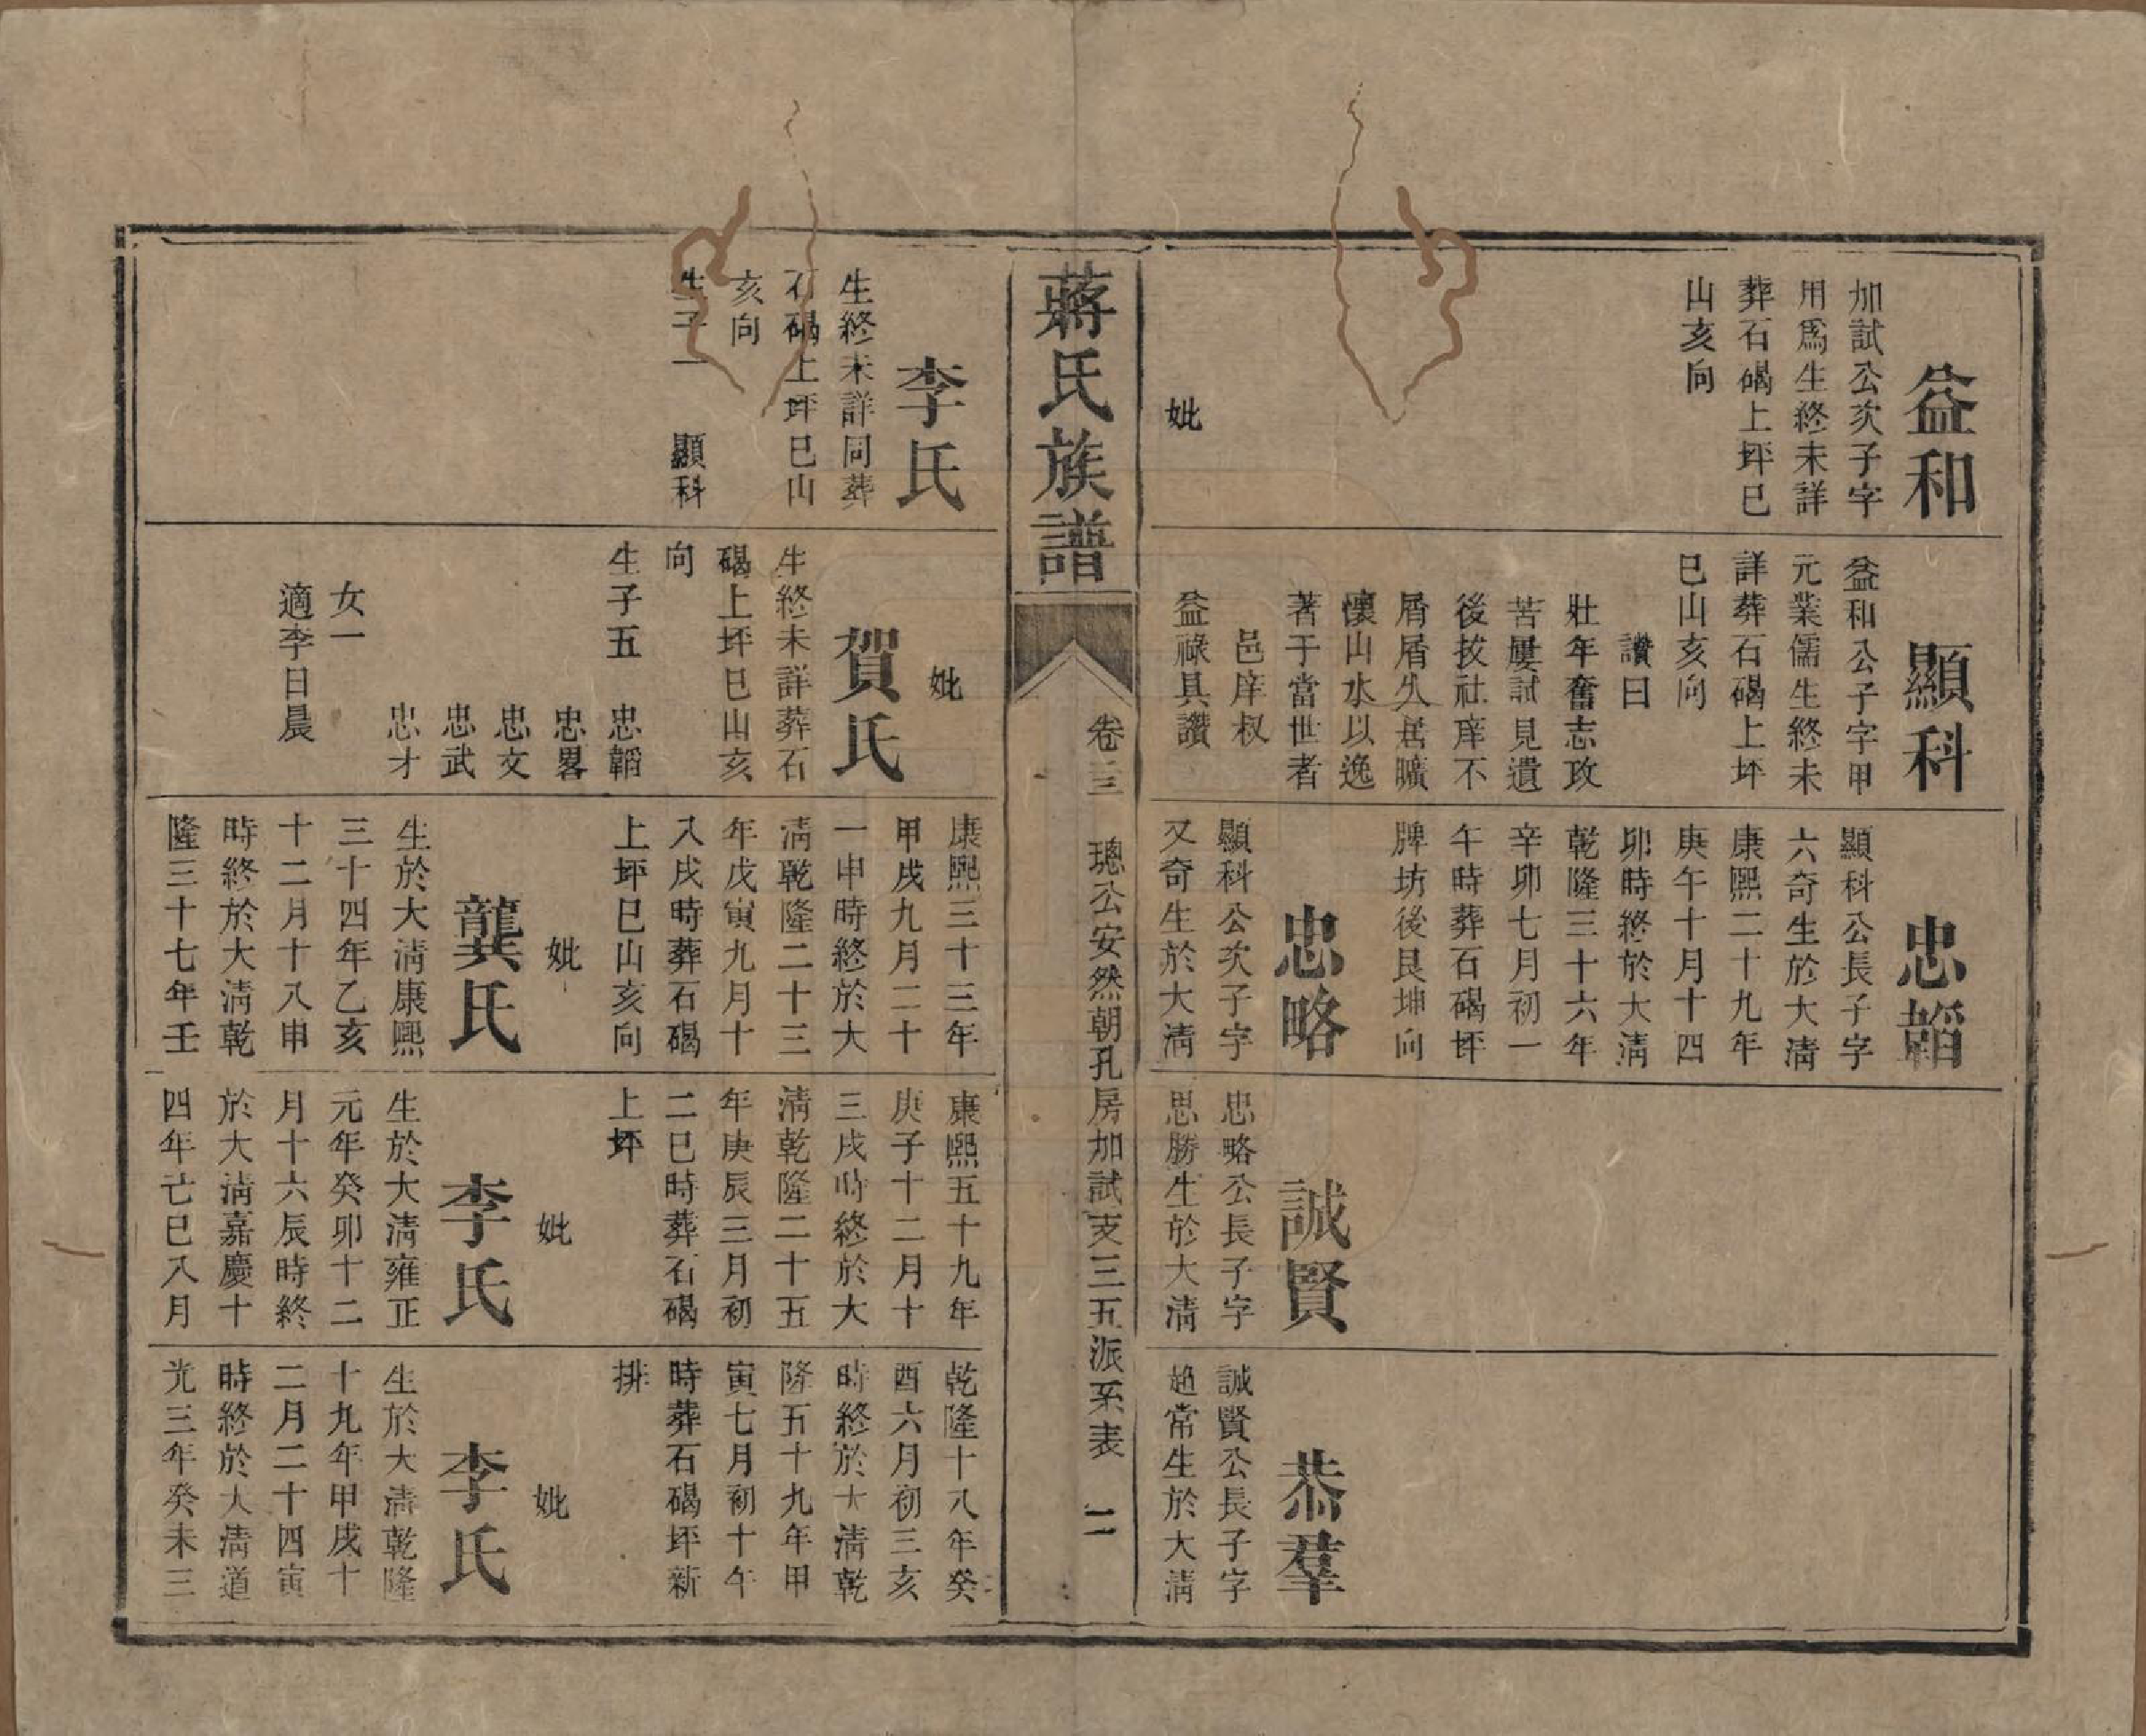 益和
加試公次子字
用爲生終未詳
葬石碣上坪巳
山亥向
妣
顯科
益和公子字甲
元業儒生終未
詳葬石碣上坪
巳山亥向
讚曰
壯年奮志攻
苦屢試見遺
後拔社庠不
屑屑久居曠
懷山水以逸
著于當世者
邑庠叔
益祿具讚
忠韜
顯科公長子字
六奇生於大清
康熙二十九年
庚午十月十四
卯時終於大清
乾隆三十六年
辛卯七月初一
午時葬石碣坪
牌坊後艮坤向
忠略
顯科公次子字
又奇生於大清
誠賢
忠略公長子字
思勝生於大清
恭羣
誠賢公長子字
超常生於大清
蔣氏族譜
卷三
璁公安然朝孔房加試支三五派系表
二
李氏
生終未詳同葬
石碣上坪巳山
亥向
生子一 顯科
妣
賀氏
生終未詳葬石
碣上坪巳山亥
向
生子五 忠韜
忠畧
忠文
忠武
忠才
女一
適李日晨
康熙三十三年
甲戌九月二十
一申時終於大
清乾隆二十三
年戊寅九月十
八戌時葬石碣
上坪巳山亥向
妣
龔氏
生於大清康熙
三十四年乙亥
十二月十八申
時終於大清乾
隆三十七年壬
康熙五十九年
庚子十二月十
三戌時終於大
清乾隆二十五
年庚辰三月初
二巳時葬石碣
上坪
妣
李氏
生於大清雍正
元年癸卯十二
月十六辰時終
於大清嘉慶十
四年亡巳八月
乾隆十八年癸
酉六月初三亥
時終於大清乾
隆五十九年甲
寅七月初十午
時葬石碣坪新
排
妣
李氏
生於大清乾隆
十九年甲戌十
二月二十四寅
時終於大清道
光三年癸未三